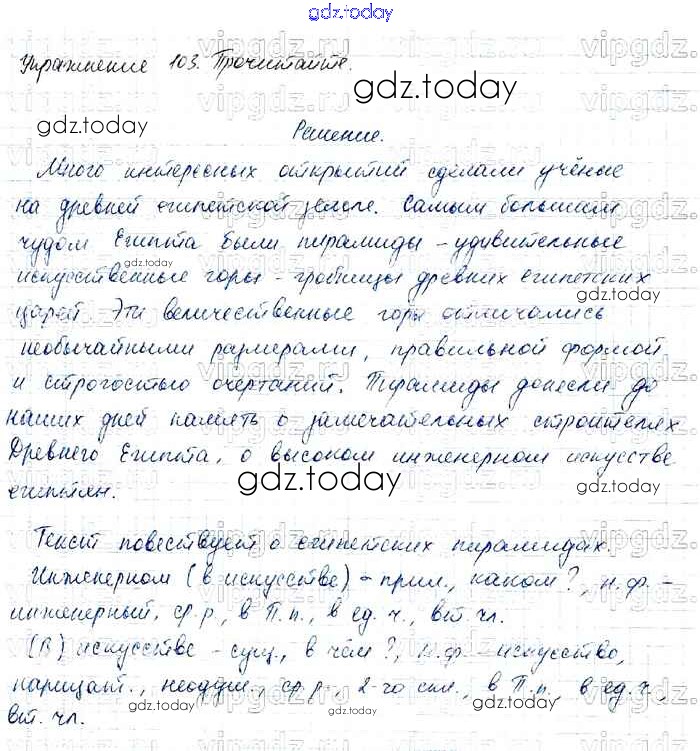 gdz.today
Упражнение 103. Прочитайте.
gdz.today
gdz.today
Решение.
Много интересных открытий сделали учёные
на древней египетской земле. Самым большим
чудом Египта были пирамиды - удивительные
gdz.today
искусственные горы - гробницы древних египетских
gdz.today
царей. Эти величественные горы отличались
gdz.today
необычайными размерами, правильной формой
и строгостью очертаний. Пирамиды донесли до
наших дней память о замечательных строителях
Древнего Египта, о высоком инженерном искусстве
gdz.today
египтян.
gdz.today
Текст повествует о египетских пирамидах.
Инженерном (в искусстве) - прил., каком?, н.ф. -
инженерный, ср.р., в П.п., в ед.ч., вт. чл.
(В) искусстве - сущ., в чём?, н.ф. - искусство,
нарицат., неодуш., ср.р., 2-го скл., в П.п., в ед.ч.,
gdz.today
gdz.today
вт. чл.